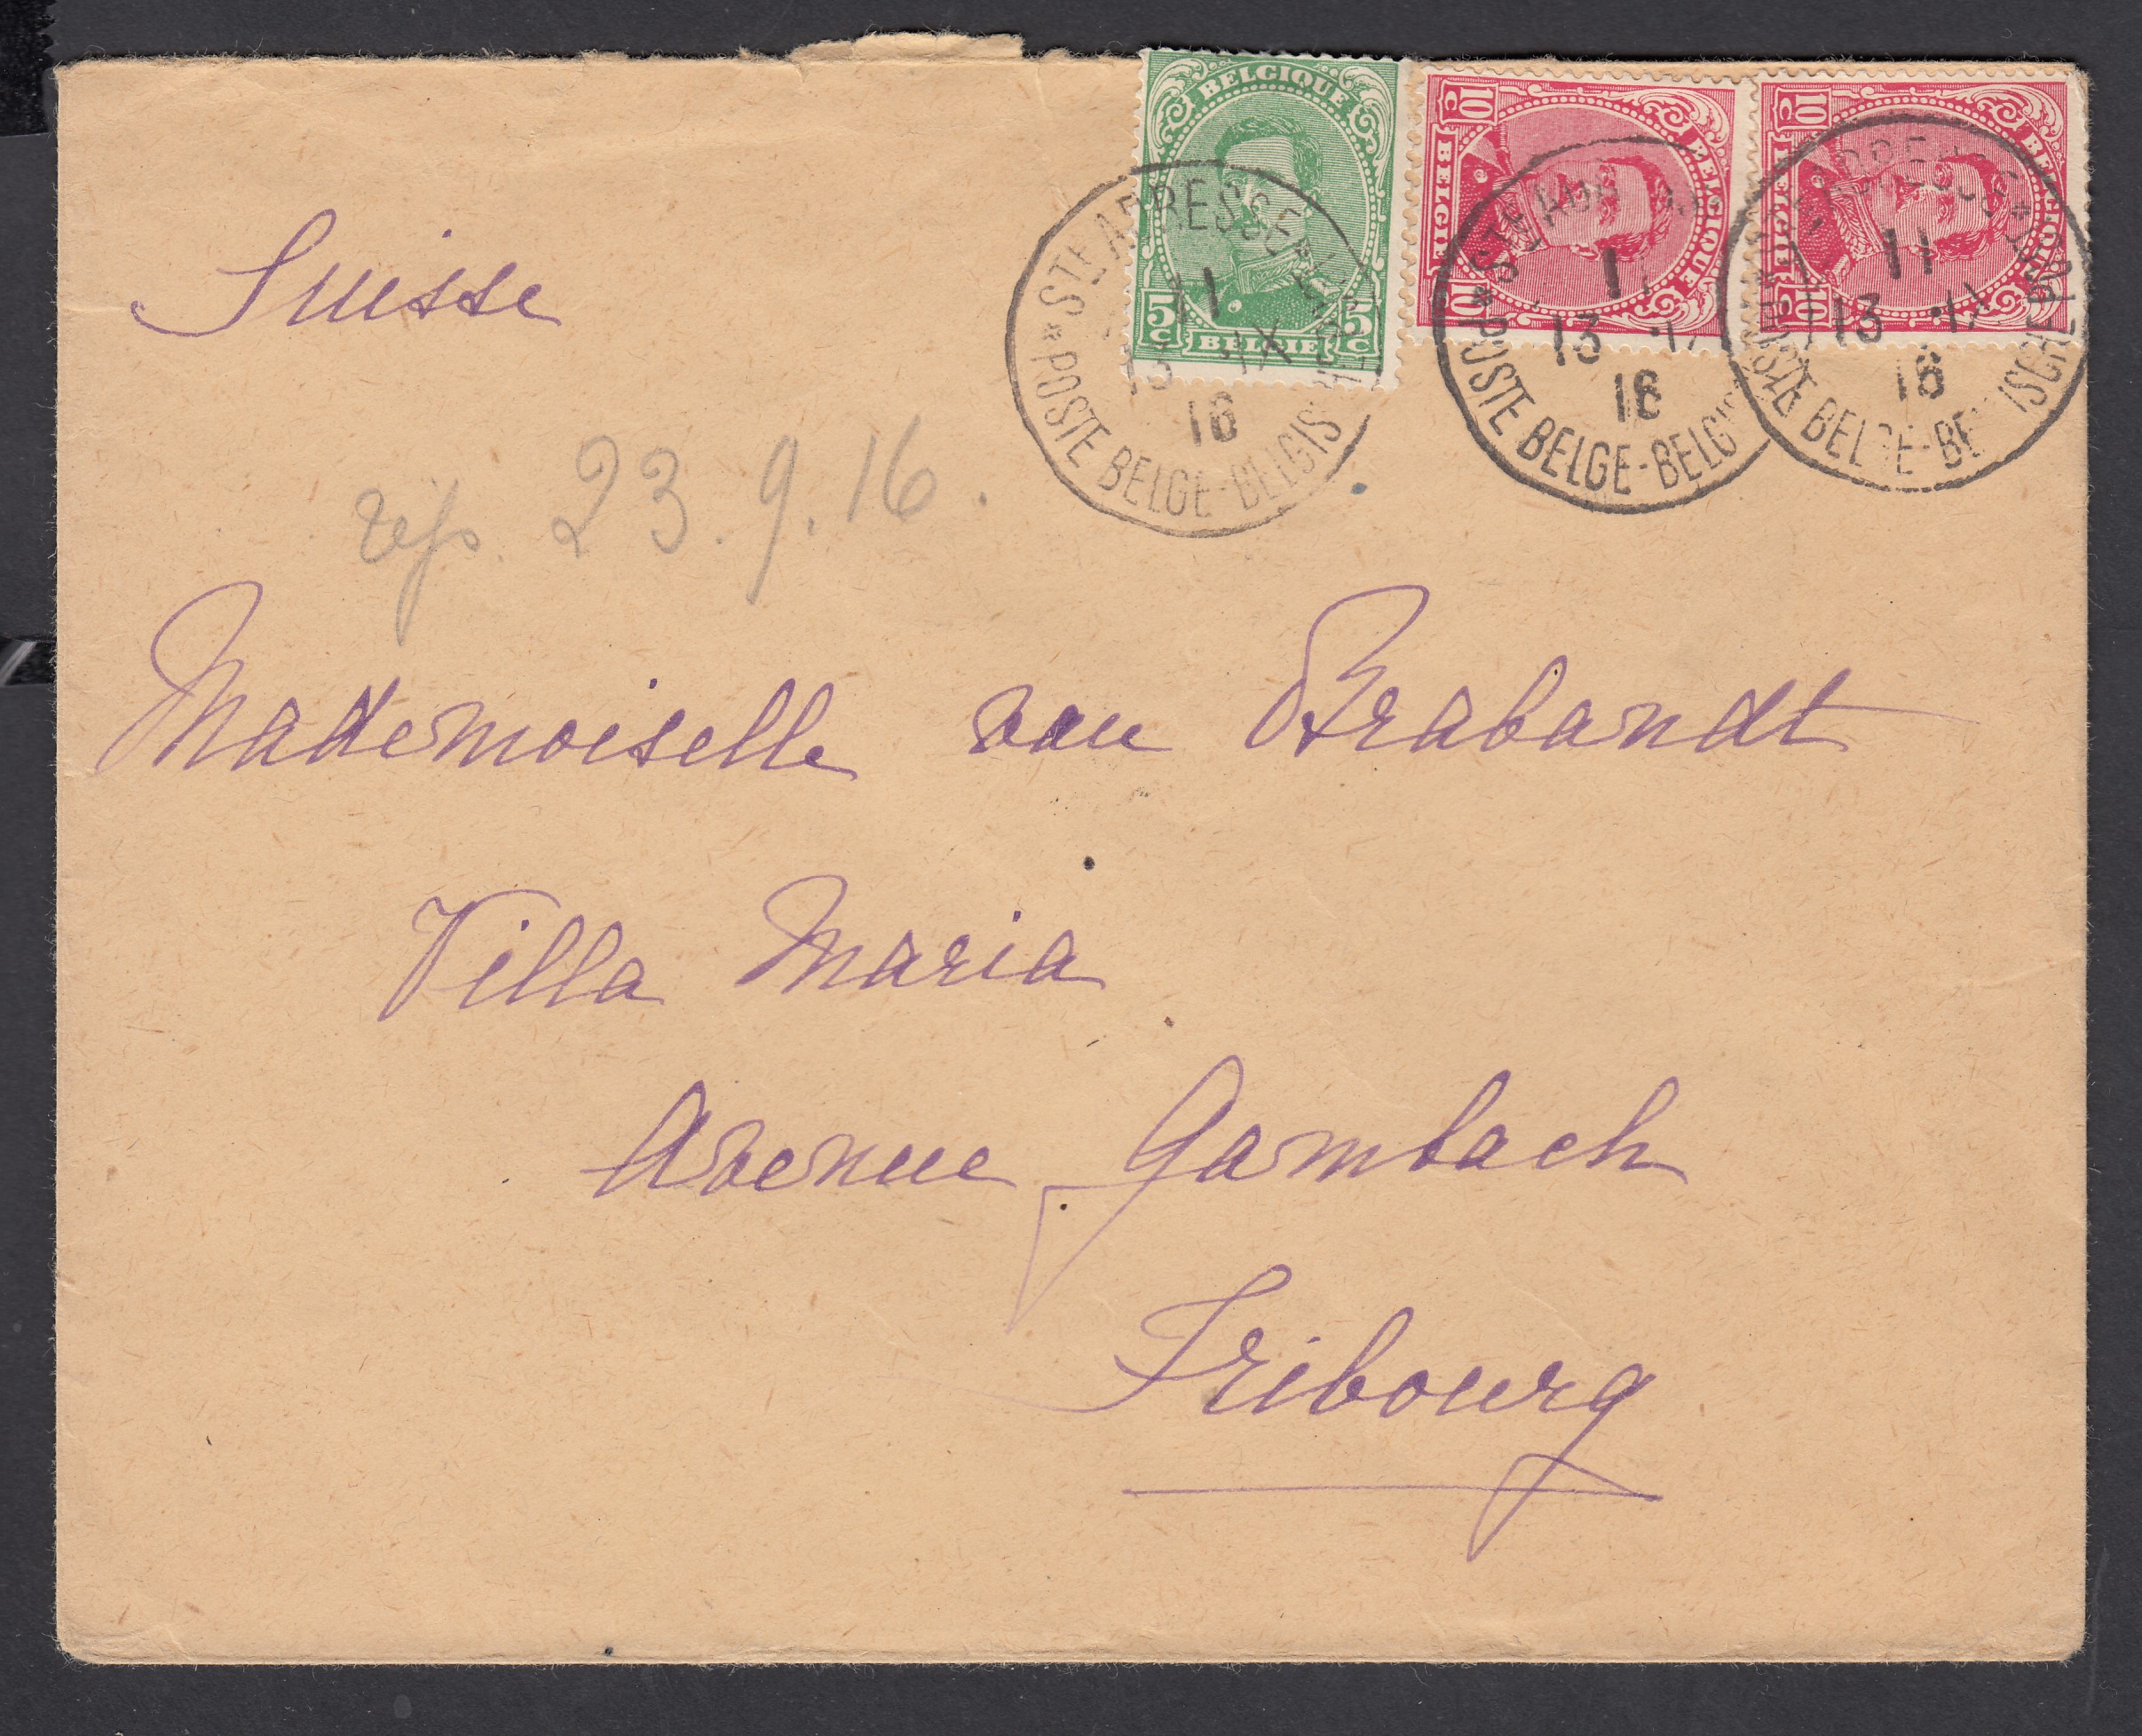 BELGIQUE
5 C 5 C
BELGIE
10 C
BELGIQUE
BELGIE
10 C
10 C
BELGIQUE
BELGIE
10 C
* STE ADRESSE
11
13 IX
16
POSTE BELGE-BELGIS
* STE ADR
11
13
16
POSTE BELGE-BELGIS
11
13 IX
16
Suisse
rép. 23.9.16.
Mademoiselle van Brabandt
Villa Maria
Avenue Gambach
Fribourg